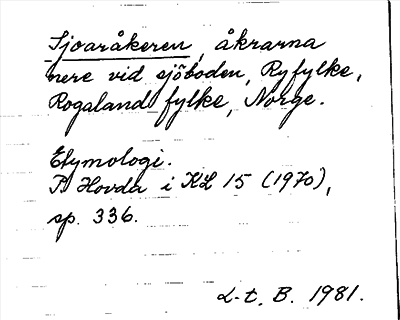 Sjoaråkeren, åkrarna
nere vid sjöboden, Ryfylke,
Rogaland fylke, Norge.
Etymologi.
P. Hovda i KL 15 (1970),
sp. 336.
L-t. B. 1981.